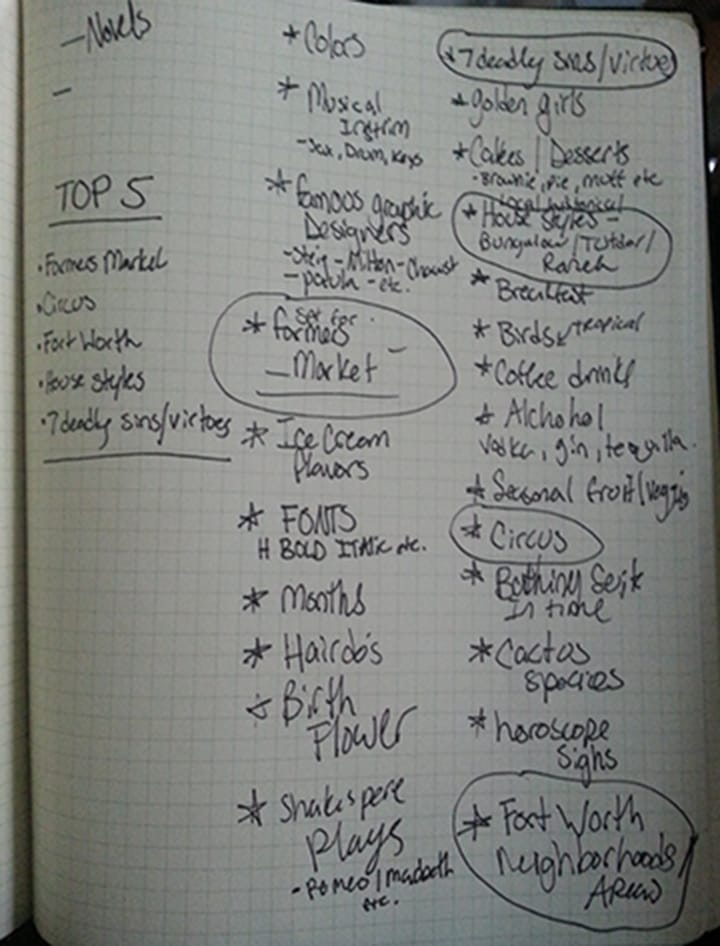 -Novels
-
TOP 5
•Farmers Market
•Circus
•Fort Worth
•House Styles
•7 deadly sins/virtoes
*Colors
*Musical
Instrim
-Sax, Drum, Keys
*famous graphic
Designers
-Steig-Milton-Chawst
-potula -etc.
*farmers
Set for
-Market
*Ice Cream
flavors
*FONTS
H BOLD ITAlic etc.
*Months
*Hairdo's
*Birth
Flower
*Shakespere
Plays
-Romeo/macbeth
etc.
*7 deadly sins/virtues
*golden girls
*Cakes/Desserts
-Brownie, pie, muff etc
*House Styles-
Bungalow/Tutdor/
Ranch
*Breakfast
*Birds tropical
*Coffee drinks
*Alchohol
Vodka, gin, tequilla.
*Seasonal fruit/veggis
*Circus
*Bathing Seik
In time
*Cactos
species
*horoscope
Sighs
*Fort Worth
neighborhoods/
AREAS